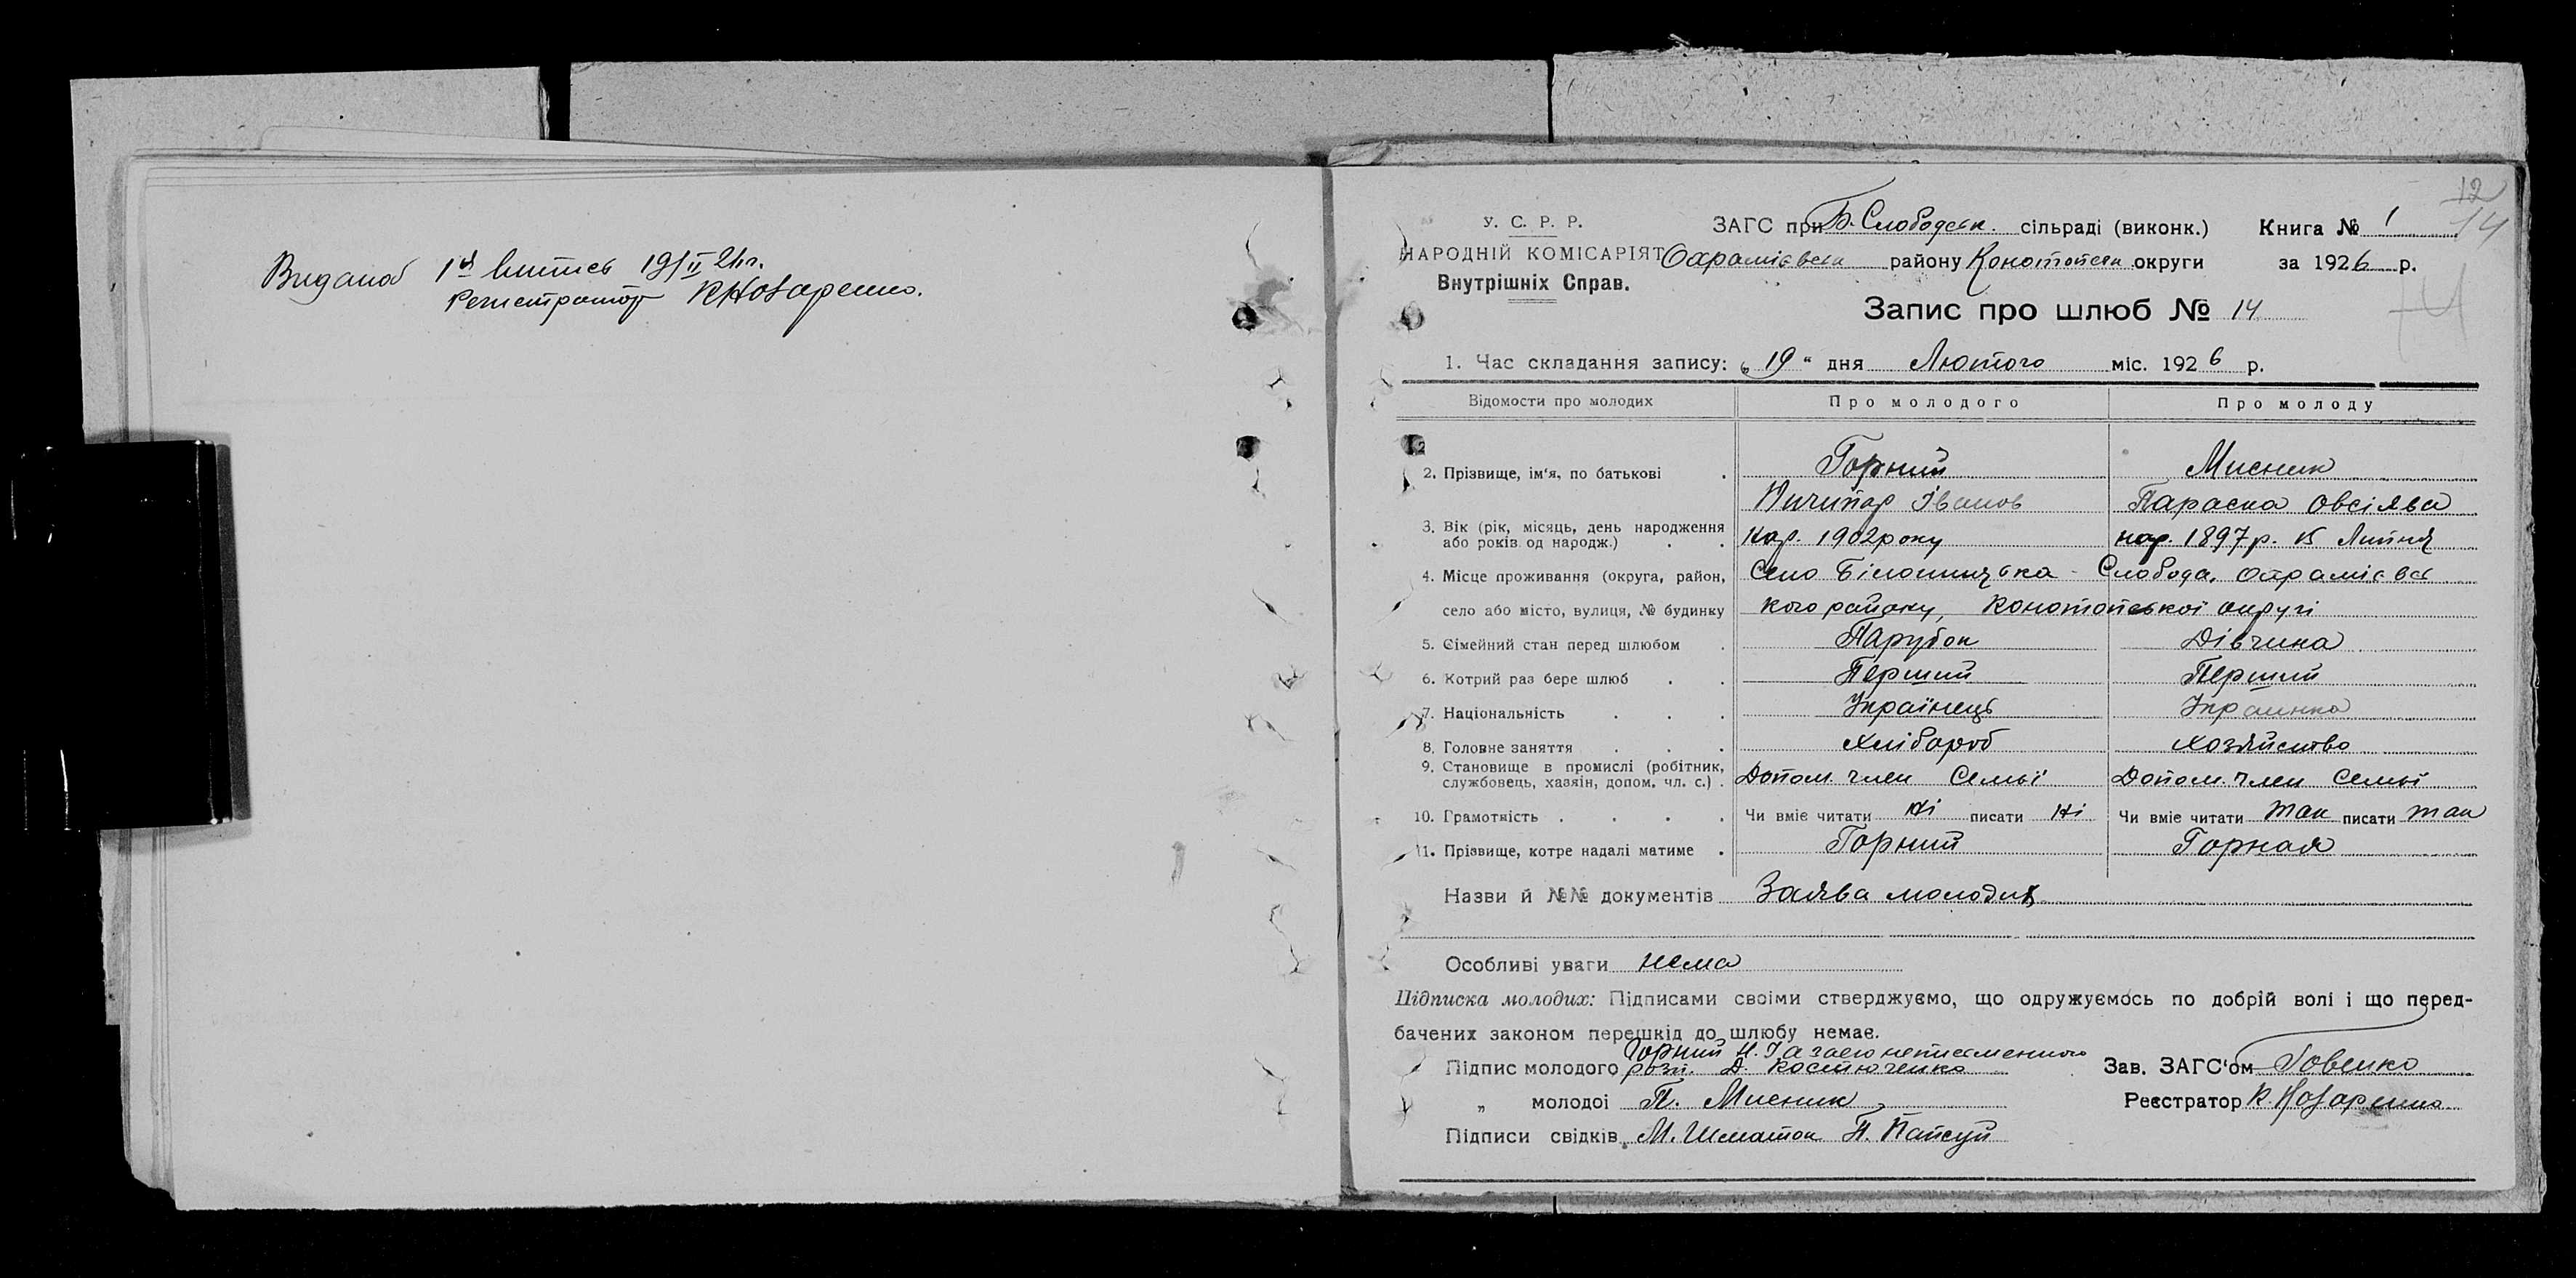 Видано 1й витись 19/II 26г.
Регистратор К Назаренко.
12
14
У. С. Р. Р.
НАРОДНІЙ КОМІСАРІЯТ
Внутрішніх Справ.
ЗАГС при Б. Слободськ. сільраді (виконк.) Книга № 1
району Конотопськ округи за 1926 р.
Запис про шлюб № 14
1. Час складання запису: „ 19 “ дня Лютого міс. 1926 р.
Відомости про молодих Про молодого Про молоду
2. Прізвище, ім‘я, по батькові Горний Мисник
Ничипор Іванов Параска Овсіява
3. Вік (рік, місяць, день народження
або років од народж.) Нар. 1902 року нар. 1897 р. 15 Липня
4. Місце проживання (округа, район, Село Слобода,
село або місто, вулиця, № будинку кого району, Конотопської округі
5. Сімейний стан перед шлюбом Парубок Дівчина
6. Котрий раз бере шлюб Перший Перший
7. Національність Українець Украинка
8. Головне заняття Хлібороб Хозяйство
9. Становище в промислі (робітник,
службовець, хазяін, допом. чл. с.) Допом. член Семьі Допом. член Семьі
10. Грамотність Чи вміє читати Ні писати Ні Чи вміє читати Так писати Так
11. Прізвище, котре надалі матиме Горний Горная
Назви й №№ документів Заява молодих
Особливі уваги Нема
Підписка молодих: Підписами своіми стверджуємо, що одружуємось по добрій волі і що перед-
бачених законом перешкід до шлюбу немає.
Горний Н. І а за его неписменного
Підпис молодого розп. Д. Костюченко Зав. ЗАГС‘ом
„ молодоі П. Мисник Реєстратор К. Назаренко
Підписи свідків М. Шматок П.